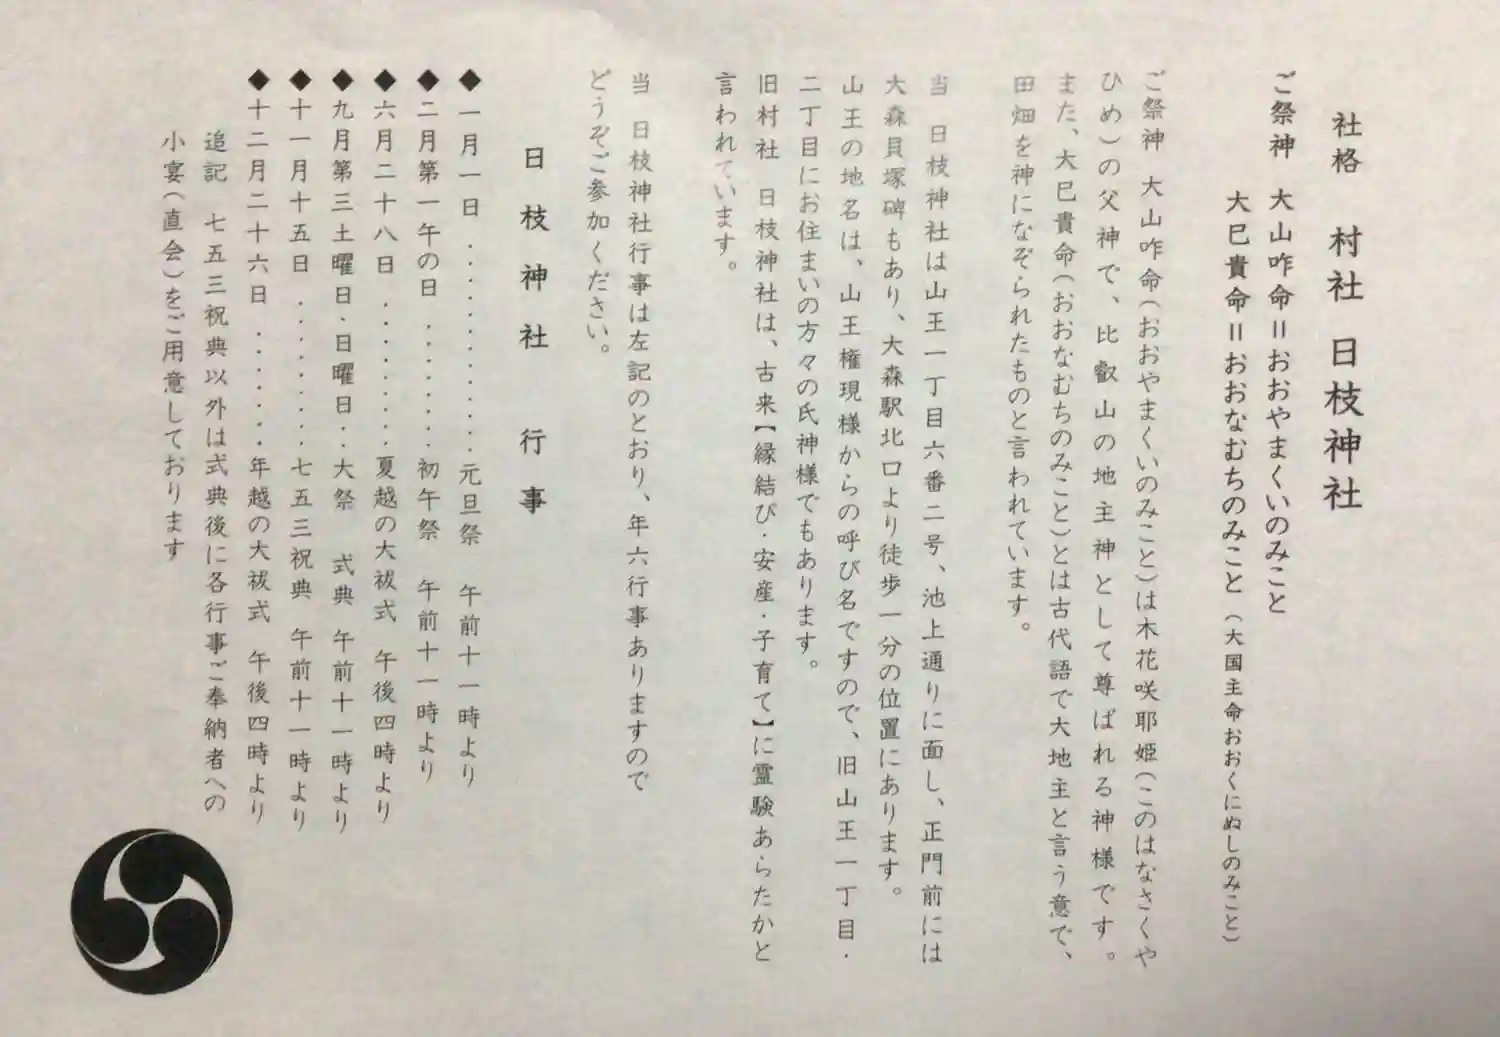 社格　村社　日枝神社
ご祭神　大山咋命＝おおやまくいのみこと
大巳貴命＝おおなむちのみこと（大国主命おおくにぬしのみこと）
ご祭神　大山咋命（おおやまくいのみこと）は木花咲耶姫（このはなさくや
ひめ）の父神で、比叡山の地主神として尊ばれる神様です。
また、大巳貴命（おおなむちのみこと）とは古代語で大地主と言う意で、
田畑を神になぞられたものと言われています。
当　日枝神社は山王一丁目六番二号、池上通りに面し、正門前には
大森貝塚碑もあり、大森駅北口より徒歩一分の位置にあります。
山王の地名は、山王権現様からの呼び名ですので、旧山王一丁目・
二丁目にお住まいの方々の氏神様でもあります。
旧村社　日枝神社は、古来【縁結び・安産・子育て】に霊験あらたかと
言われています。
当　日枝神社行事は左記のとおり、年六行事ありますので
どうぞご参加ください。
日枝神社　行事
◆一月一日・・・・・・・・・・・・元旦祭　午前十一時より
◆二月第一午の日・・・・・・・・初午祭　午前十一時より
◆六月二十八日・・・・・・・・夏越の大祓式　午後四時より
◆九月第三土曜日・日曜日・・大祭　式典　午前十一時より
◆十一月十五日・・・・・・・・七五三祝典　午前十一時より
◆十二月二十六日・・・・・・・年越の大祓式　午後四時より
追記　七五三祝典以外は式典後に各行事ご奉納者への
小宴（直会）をご用意しております